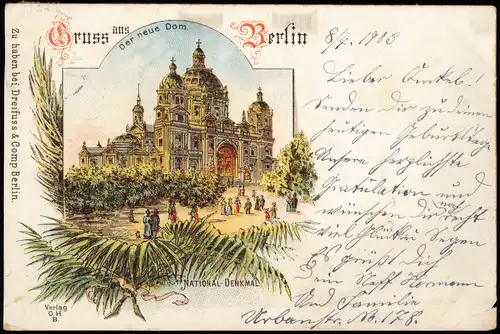 Gruss aus Berlin
Der neue Dom.
NATIONAL-DENKMAL
Zu haben bei Dreifuss & Comp Berlin.
Verlag
O. H.
B.
8/7. 1903
Lieber Onkel!
Senden Dir zu deinem
heutigen Geburtstage
Unsere herzlichste
Gratulation und
wünschen dir recht
viel Glück u Segen
Es grüßt Dich
Dein Neff Hermann
Und Familie
Urbanstr. Nr. 178.